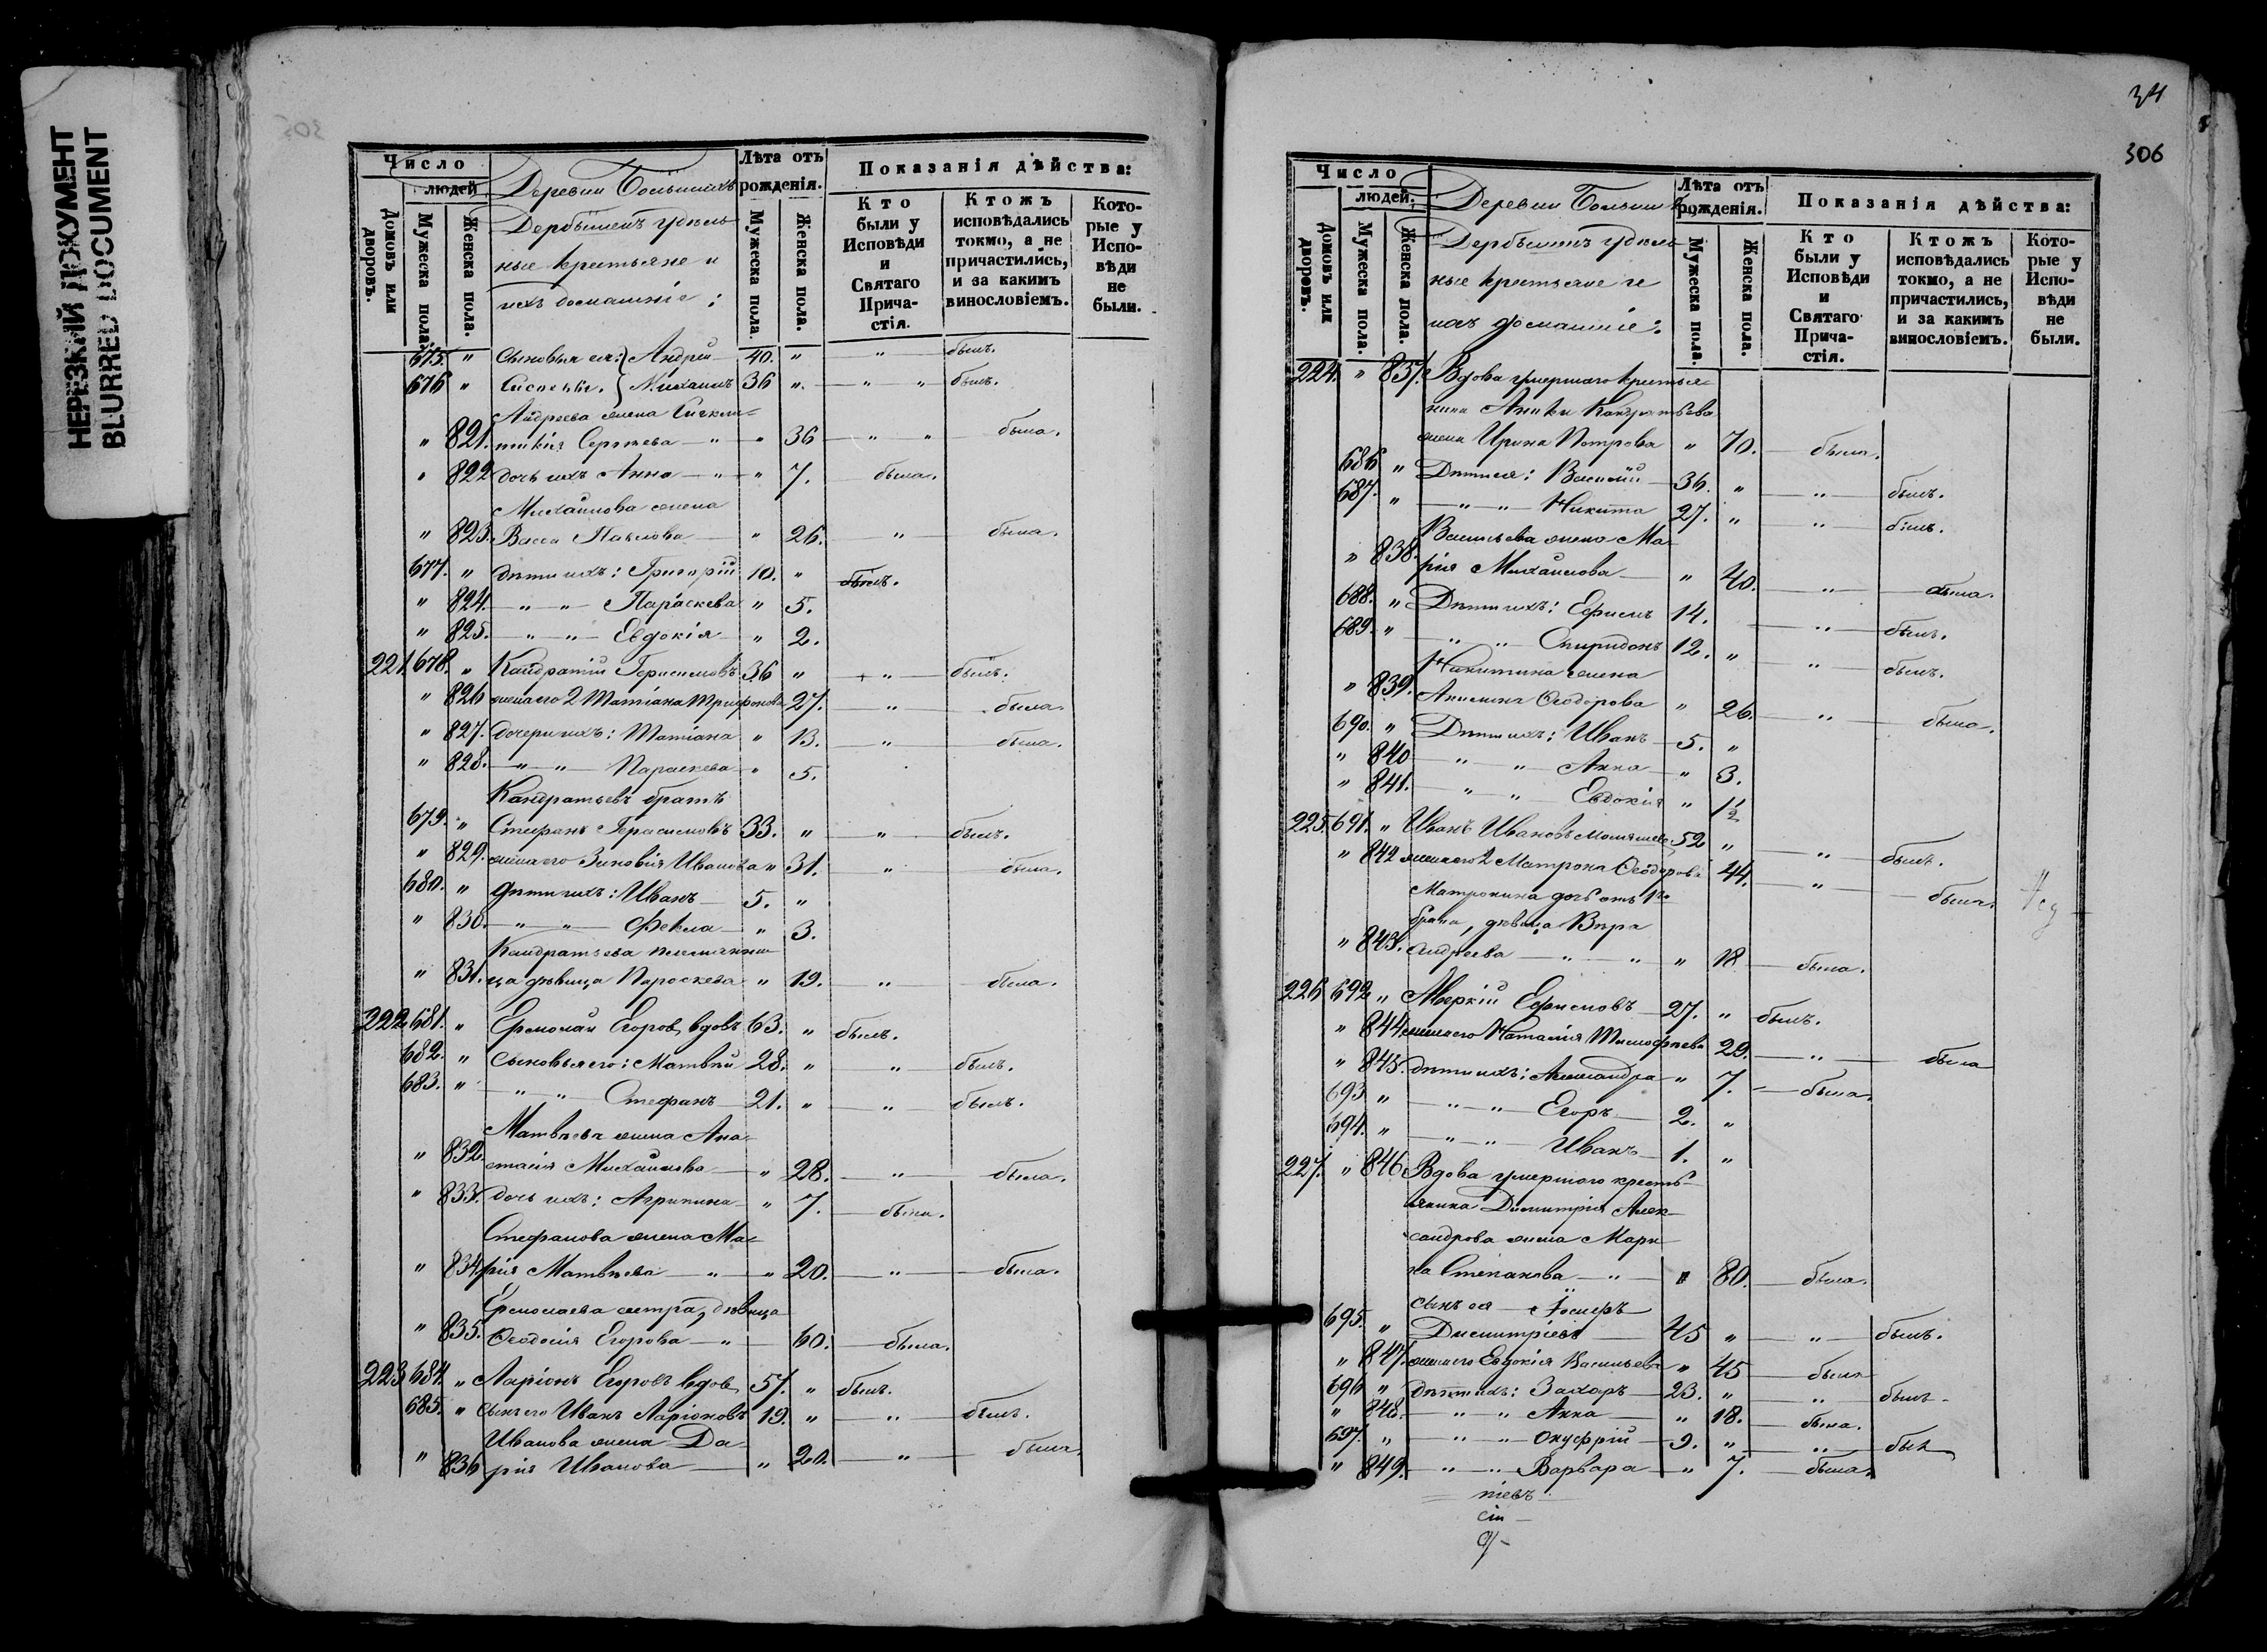 НЕРЕЗКИЙ ДОКУМЕНТ
BLURRED DOCUMENT
Число
людей
Домовъ или дворовъ.
Мужеска пола.
Женска пола.
Деревни Большихъ
Дербышехъ удѣль-
ные крестьяне и
ихъ домашніе:
Лѣта отъ рожденія.
Мужеска пола.
Женска пола.
Показанія дѣйства:
Кто были у Исповѣди и Святаго Прича-стія.
Ктожъ исповѣдались токмо, а не причастились, и за какимъ винословіемъ.
Кото-рые у Испо-вѣди не были.
675. " сыновья ея: Андрей 40. " " былъ.
676 " Михаилъ 36 " " " былъ.
Андреева жена
" 821. Сергѣева " " 36 " " была.
" 822 дочь ихъ Анна " " 7. была.
Михайлова жена
" 823. Васса Павлова " 26. " была.
677. " дѣти ихъ: Григорій 10. " былъ.
" 824. " " Параскева " 5.
" 825. " " Евдокія " 2.
221 678. " Кандратій Герасимовъ 36 " " былъ.
" 826 жена его 2 Татіана Трифонова 27. " была.
" 827. дочери ихъ: Татіана " 13. " была.
" 828. " " Параскева " 5.
Кандратьевъ братъ
679. " Стефанъ Герасимовъ 33. " " былъ.
" 829. жена его Зиновія Иванова " 31. " была.
680. " дѣти ихъ: Иванъ 5. "
" 830. " " Ѳекла " 3.
Кандратьева племянни-
" 831. ца дѣвица Пароскева " 19. " была.
222 681. " Ермолай Егоровъ вдовъ 63. " былъ.
682. " сыновья его: Матвѣй 28. " " былъ.
683. " " " Стефанъ 21. " " былъ.
Матвѣева жена Ана-
" 832. стасія Михайлова " 28. " была.
" 833. дочь ихъ: Агрипина " 7. была.
Стефанова жена Ма-
" 834. рія Матвѣева " " 20. " была.
Ермолаева сестра, дѣвица
" 835. Ѳеодосія Егорова " 60. была.
223 684. " Ларіонъ Егоровъ вдовъ 57. " былъ.
685. " сынъ его Иванъ Ларіоновъ 19. " " былъ.
Иванова жена Да-
" 836 рія Иванова " 20. " была.
34
306
Число
людей.
Домовъ или дворовъ.
Мужеска пола.
Женска пола.
Деревни Большихъ
Дербышехъ удѣль-
ные крестьяне и
ихъ домашніе:
Лѣта отъ рожденія.
Мужеска пола.
Женска пола.
Показанія дѣйства:
Кто были у Исповѣди и Святаго Прича-стія.
Ктожъ исповѣдались токмо, а не причастились, и за какимъ винословіемъ.
Кото-рые у Испо-вѣди не были.
224. " 837. Вдова умершаго крестья-
нина Аники Кандратьева
жена Ирина Петрова " 70. была.
686 " Дѣти ея: Василій 36. " " былъ.
687. " " " Никита 27. " " былъ.
Васильева жена Ма-
" 838. рія Михайлова " 40. " была.
688. " Дѣти ихъ: Ефимъ 14. " былъ.
689. " " " Спиридонъ 12. " " былъ.
Никитина жена
" 839. Акилина Ѳеодорова " 26. " была.
690. " Дѣти ихъ: Иванъ 5. "
" 840 " " Анна " 3.
" 841. " " Евдокія " 1½
225. 691. " Иванъ Ивановъ 52 " " былъ.
" 842 жена его 2 Матрона Ѳеодорова 44. " была.
Матронина дочь отъ 1го
брака, дѣвица Вѣра
" 843. Андреева " " " 18 была.
226 692 " Аверкій Ефимовъ 27. " былъ.
" 844. жена его Наталія Тимофѣева 29. " была
" 845. дѣти ихъ: Александра " 7. была.
693 " " " Егоръ 2. "
694. " " " Иванъ 1. "
227. " 846 Вдова умершаго кресть-
янина Димитрія Алек-
сандрова жена Мари-
на Степанова " " 80. была.
сынъ ея
695. " Димитріевъ 45 " " былъ.
" 847. жена его Евдокія Васильева " 45 была
696 " дѣти ихъ: Захаръ 23. " " былъ
" 848. " " Анна " 18. была.
697. " " " Онуфрій 9. " " былъ
" 849. " " Варвара " 7. была.